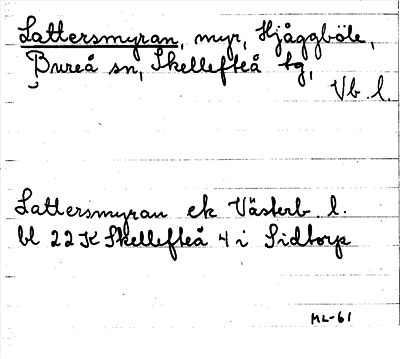 Lattersmyran, myr, Hjåggböle,
Bureå sn, Skellefteå tg,
Vb. l.
Lattersmyran ek Västerb. l.
bl 22K Skellefteå 4 i Sidtorp
ML-61